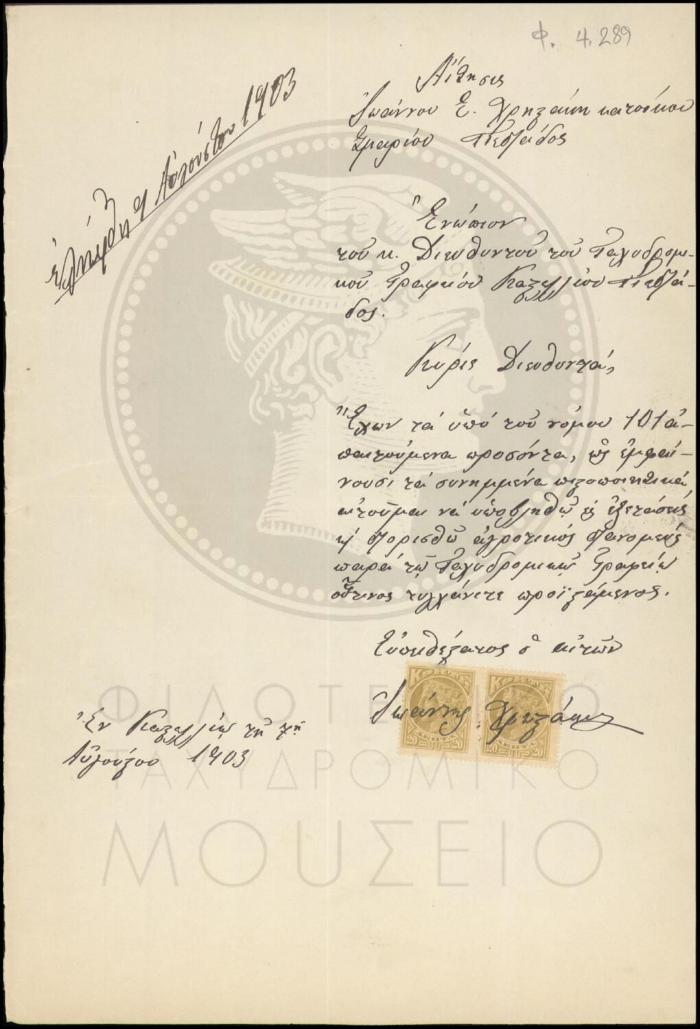 Φ. 4.289
Ἐλήφθη 9 Αὐγούστου 1903
Αἴτησις
Ἰωάννου Ε. κατοίκου
Σμαρίου Πεδιάδος
Ἐνώπιον
τοῦ κ. Διευθυντοῦ τοῦ Ταχυδρομι-
κοῦ Γραφείου Καστελλίου Πεδιά-
δος.
Κύριε Διευθυντά,
Ἔχων τά ὑπό τοῦ νόμου 101 ἀ-
παιτούμενα προσόντα, ὡς ἐμφαί-
νουσι τά συνημμένα πιστοποιητικά
αἰτοῦμαι νά ὑποβληθῶ εἰς ἐξετάσεις
κ) διορισθῶ ἀγροτικός διανομεύς
παρά τῷ Ταχυδρομικῷ Γραφείῳ
οὗτινος τυγχάνετε προϊστάμενος.
Εὐπειθέστατος ὁ αἰτῶν
Ἰωάννης
Ἐν Καστελλίῳ τῇ
Αὐγούστου 1903
ΦΙΛΟΤΕΛΙΚΟ
ΤΑΧΥΔΡΟΜΙΚΟ
ΜΟΥΣΕΙΟ